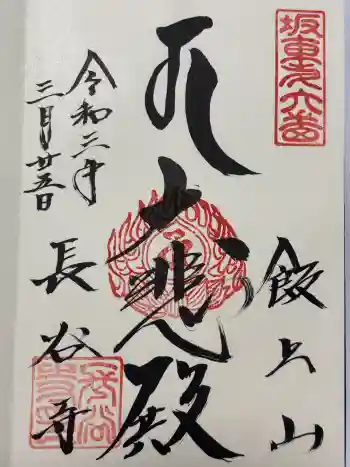 坂東第六番
飯上山
大悲殿
令和二年
三月廿五日
長谷寺